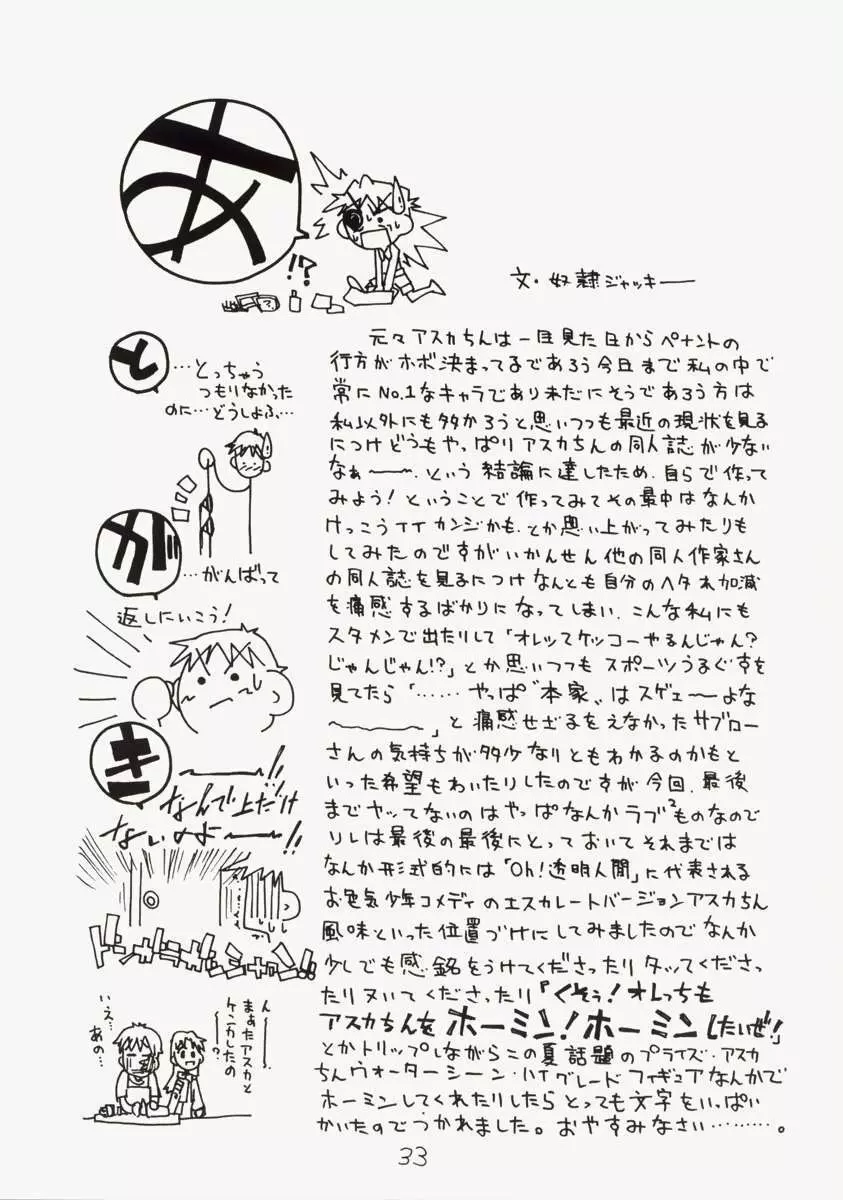 あ
!?
文・奴隷ジャッキー
と
…とっちゃう
つもりなかった
のに…どうしよふ…
が
…がんばって
返しにいこう!
き
なんで上だけ
ないのよー!!
ん
まぁたアスカと
ケンカしたの
?
いえ…
あの…
元々アスカちんは一目見た日からペナントの
行方がホボ決まってるであろう今日まで私の中で
常にNo.1なキャラであり未だにそうであろう方は
私以外にも多かろうと思いつつも最近の現状を見る
につけどうもやっぱりアスカちんの同人誌が少ない
なぁ〜〜、という結論に達したため、自らで作って
みよう!ということで作ってみてその最中はなんか
けっこうイイカンジかも、とか思い上がってみたりも
してみたのですがいかんせん他の同人作家さん
の同人誌を見るにつけなんとも自分のヘタれ加減
を痛感するばかりになってしまい、こんな私にも
スタメンで出たりして「オレッてケッコーやるんじゃん?
じゃんじゃん!?」とか思いつつもスポーツうるぐすを
見てたら「……やっぱ〝本家〟はスゲェーよな
〜〜〜」と痛感せざるをえなかったサブロー
さんの気持ちが多少なりともわかるのかもと
いった希望もわいたりしたのですが今回、最後
までヤッてないのはやっぱなんかラブ²ものなので
ソレは最後の最後にとっておいてそれまでは
なんか形式的には「Oh!透明人間」に代表される
お色気少年コメディのエスカレートバージョンアスカちん
風味といった位置づけにしてみましたのでなんか
少しでも感銘をうけてくださったりタッてくださっ
たりヌいてくださったり『くそぅ!オレっちも
アスカちんをホーミン!ホーミンしたいぜ!』
とかトリップしながらこの夏話題のプライズ・アスカ
ちんウォーターシーン・ハイグレードフィギュアなんかで
ホーミンしてくれたりしたらとっても文字をいっぱい
かいたのでつかれました。おやすみなさい………。
33